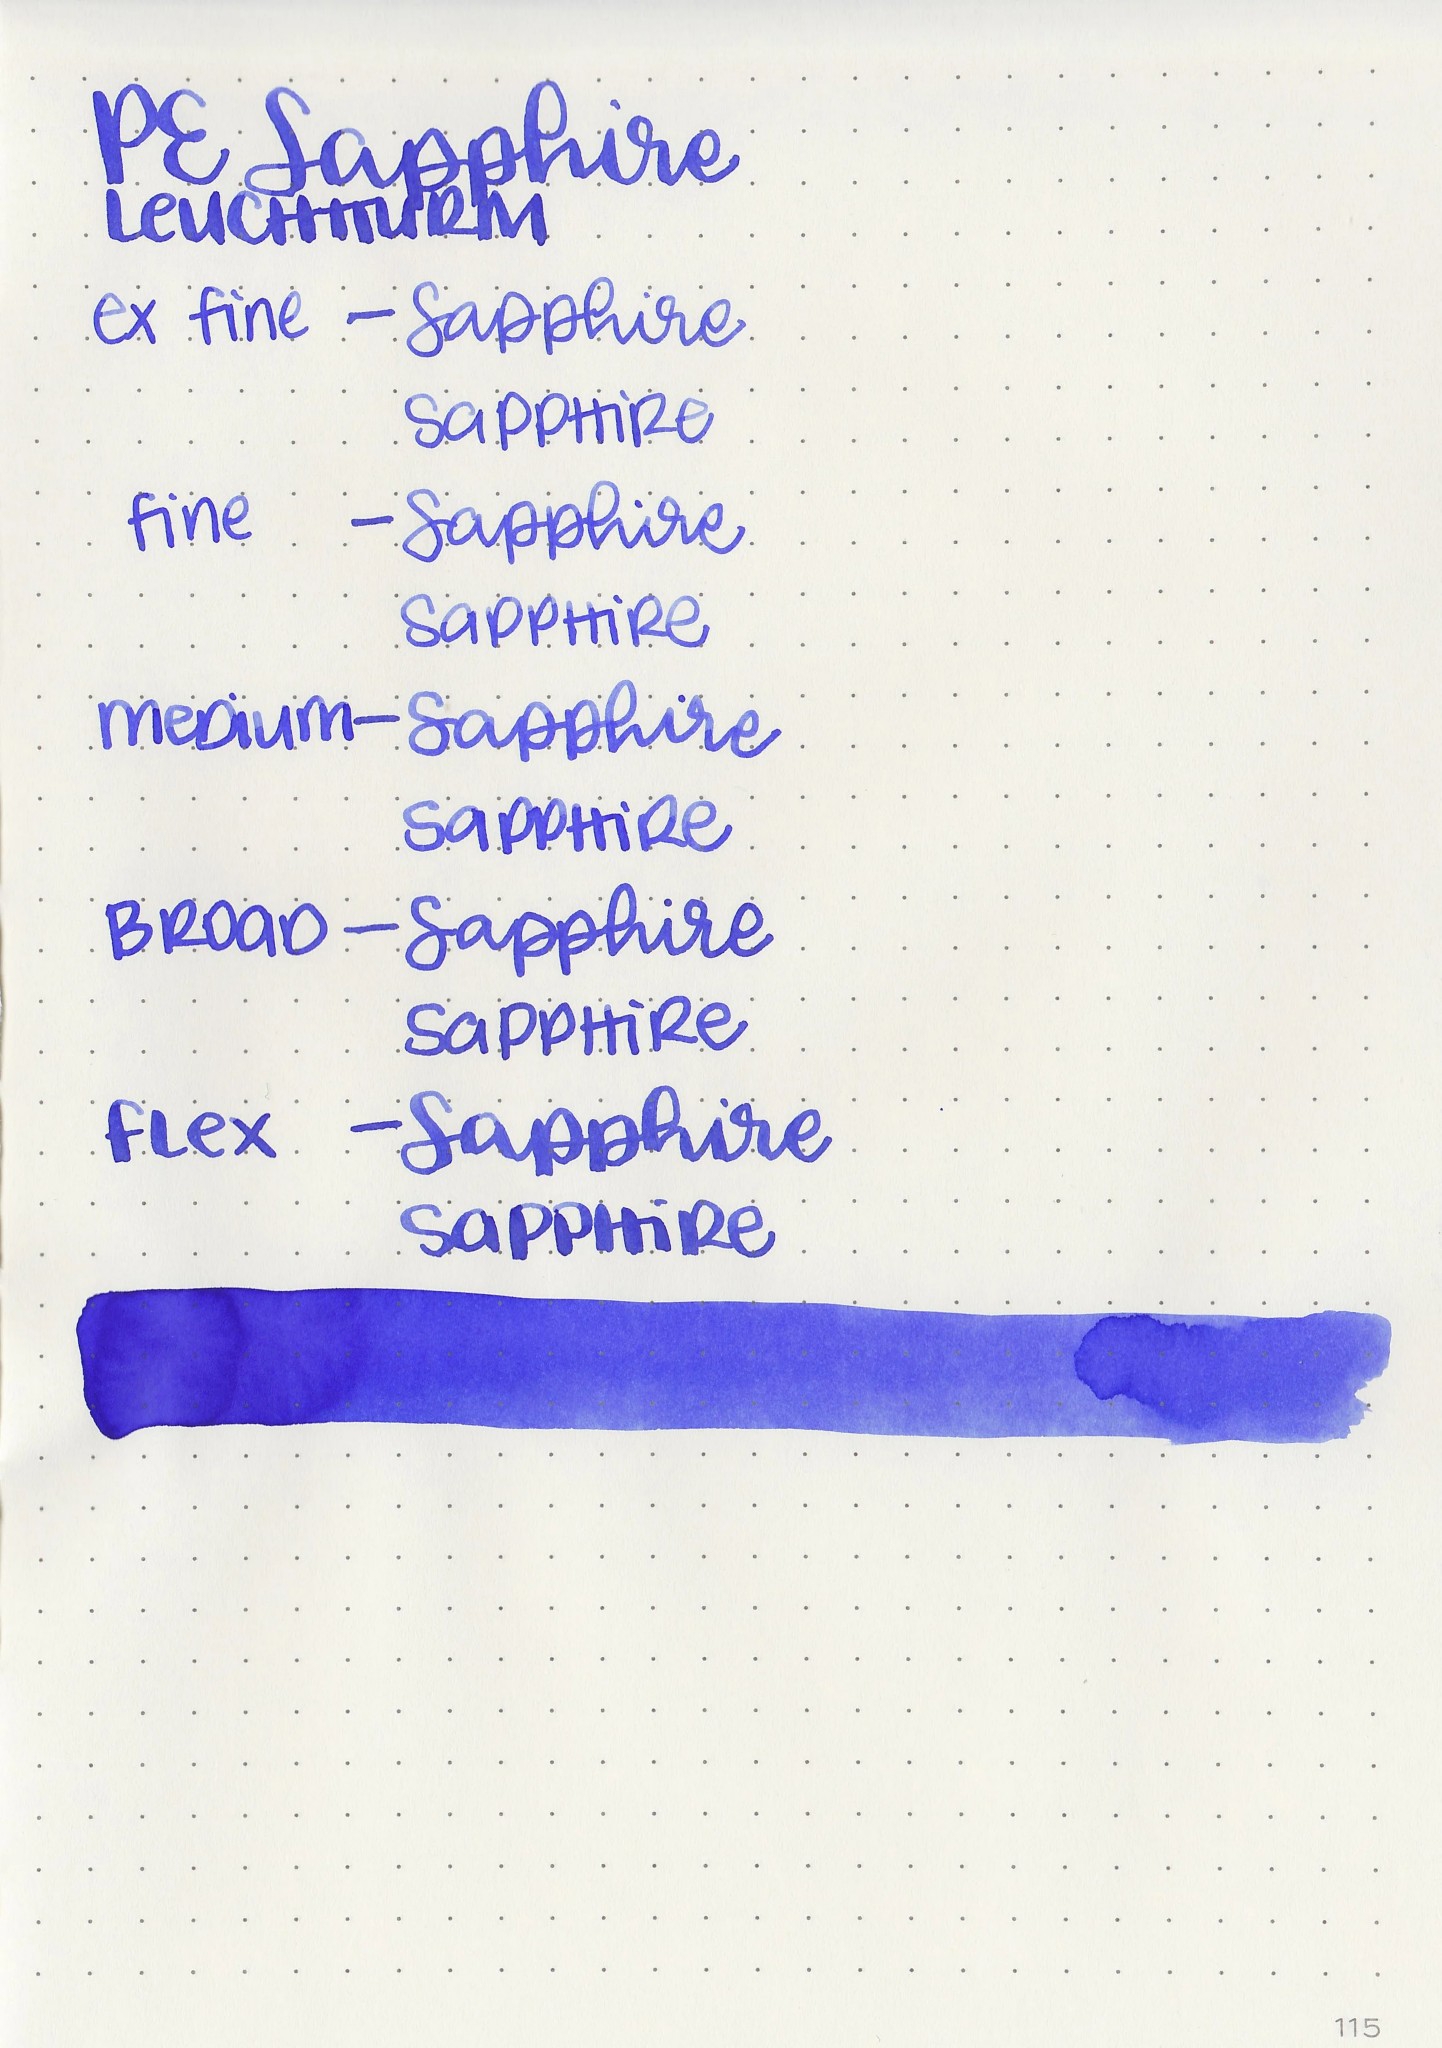 PE Sapphire
LEUCHTTURM
ex fine - Sapphire
SAPPHIRE
fine - Sapphire
SAPPHIRE
MEDIUM - Sapphire
SAPPHIRE
BROAD - Sapphire
SAPPHIRE
FLEX - Sapphire
SAPPHIRE
115